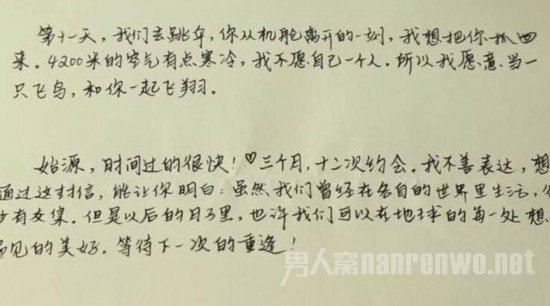 第十一天，我们去跳伞，你从机舱离开的一刻，我想把你抓回
来。4200米的空气有点寒冷，我不愿自己一个人。所以我愿意当一
只飞鸟，和你一起飞翔。
始源，时间过的很快！♡三个月，十二次约会。我不善表达，想
通过这封信，能让你明白：虽然我们曾经在各自的世界里生活，
没有交集。但是以后的日子里，也许我们可以在地球的每一处想
遇见的美好。等待下一次的重逢！
男人窝nanrenwo.net